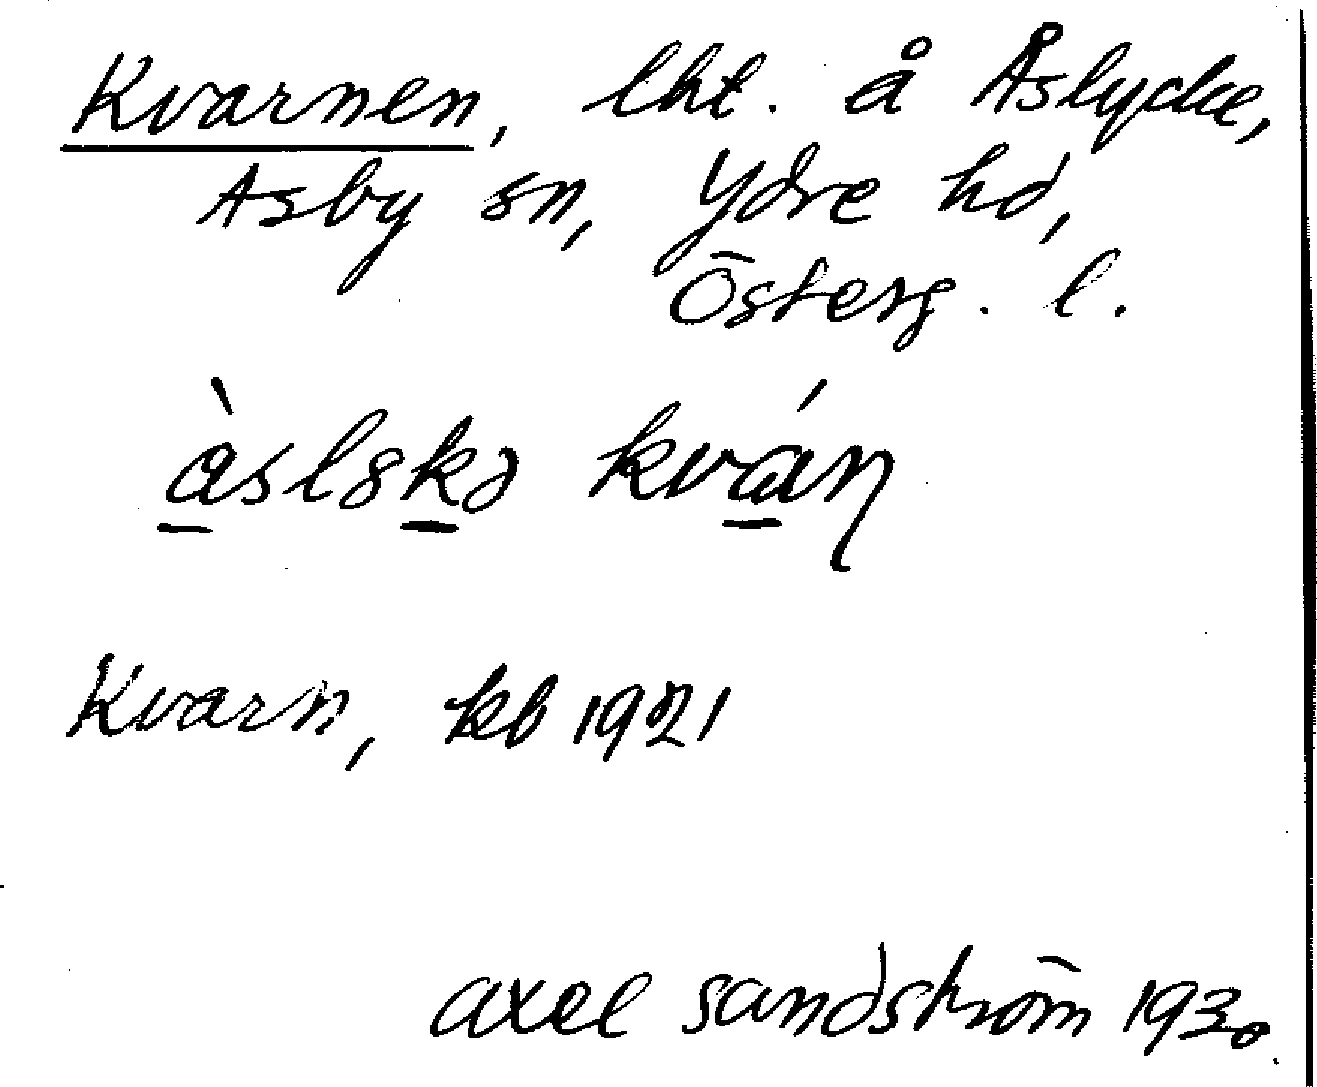 Kvarnen, lht. å Åslycke,
Asby sn, Ydre hd,
Österg. l.
kván
Kvarn, kb 1921
axel sandström 1930.